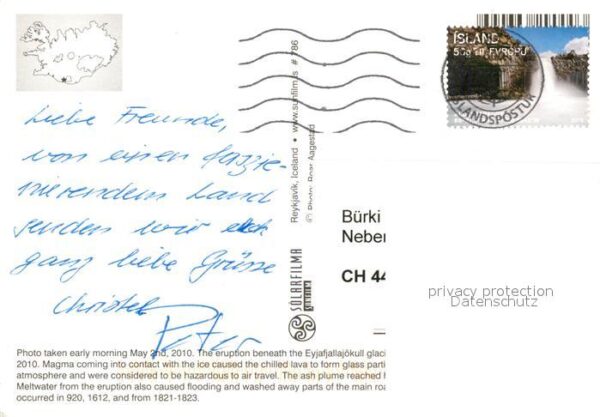 ÍSLAND
50g TIL EVRÓPU
ÍSLANDSPÓSTUR
Liebe Freunde,
von einem faszi-
nierendem Land
senden wir euch
ganz liebe Grüsse
Christel
Peter
Reykjavik, Iceland • www.sunfilm.is # 786
© Photo: Ragnar Aagestad
SOLARFILMA
Bürki
Neber
CH 44
privacy protection
Datenschutz
Photo taken early morning May 2nd, 2010. The eruption beneath the Eyjafjallajökull glaci
2010. Magma coming into contact with the ice caused the chilled lava to form glass parti
atmosphere and were considered to be hazardous to air travel. The ash plume reached h
Meltwater from the eruption also caused flooding and washed away parts of the main roa
occurred in 920, 1612, and from 1821-1823.